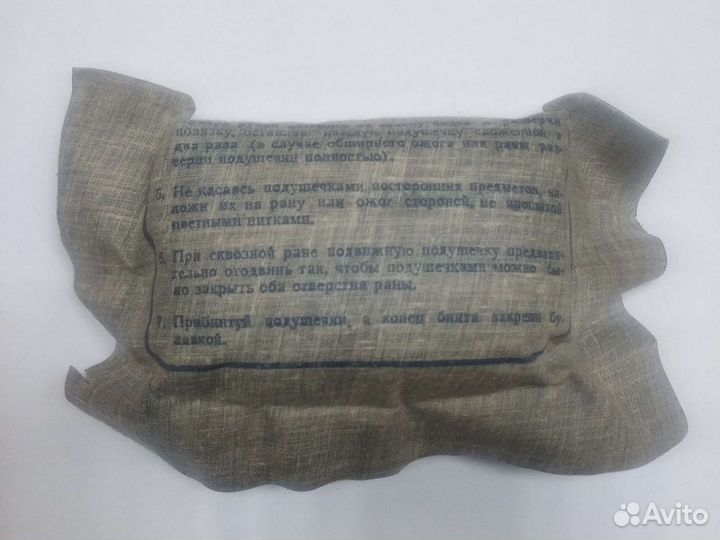 повязку, оставляя каждую подушечку сложенной в
два раза (в случае обширного ожога или раны раз-
верни подушечки полностью).
5. Не касаясь подушечками посторонних предметов, на-
ложи их на рану или ожог стороной, не прошитой
цветными нитками.
6. При сквозной ране подвижную подушечку предвари-
тельно отодвинь так, чтобы подушечками можно бы-
ло закрыть оба отверстия раны.
7. Прибинтуй подушечки, а конец бинта закрепи бу-
лавкой.
Avito